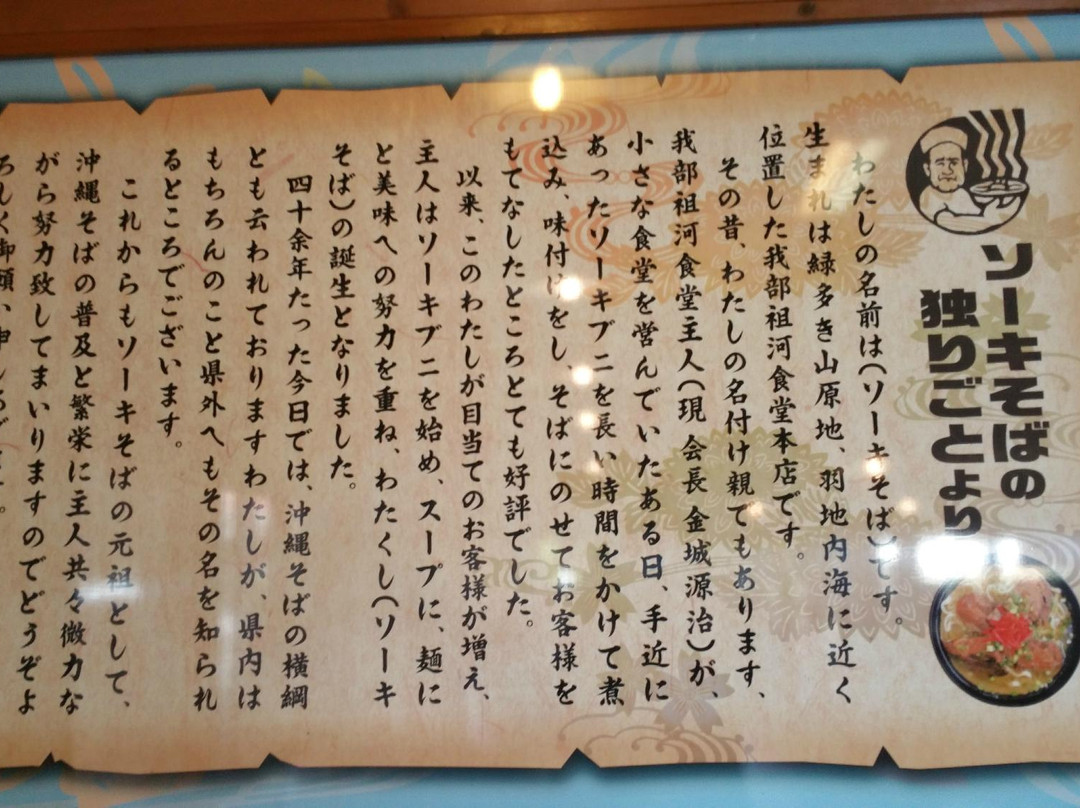 ソーキそばの
独りごとより
わたしの名前は(ソーキそば)です。
生まれは緑多き山原地、羽地内海に近く
位置した我部祖河食堂本店です。
その昔、わたしの名付け親でもあります、
我部祖河食堂主人(現 会長 金城源治)が、
小さな食堂を営んでいたある日、手近に
あったソーキブニを長い時間をかけて煮
込み、味付けをし、そばにのせてお客様を
もてなしたところとても好評でした。
以来、このわたしが目当てのお客様が増え、
主人はソーキブニを始め、スープに、麺に
と美味への努力を重ね、わたくし(ソーキ
そば)の誕生となりました。
四十余年たった今日では、沖縄そばの横綱
とも云われておりますわたしが、県内は
もちろんのこと県外へもその名を知られ
るところでございます。
これからもソーキそばの元祖として、
沖縄そばの普及と繁栄に主人共々微力な
がら努力致してまいりますのでどうぞよ
ろしく御願い申し